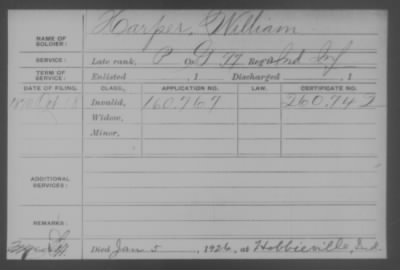 NAME OF SOLDIER: Harper, William
SERVICE: Late rank, P Co. Reg't Ind Inf
TERM OF SERVICE: Enlisted , 1 Discharged , 1
DATE OF FILING. CLASS, APPLICATION NO. LAW. CERTIFICATE NO.
Invalid, 160.767 260.742
Widow,
Minor,
ADDITIONAL SERVICES:
REMARKS:
Died Jan 5 , 1926, at Hobbieville, Ind.